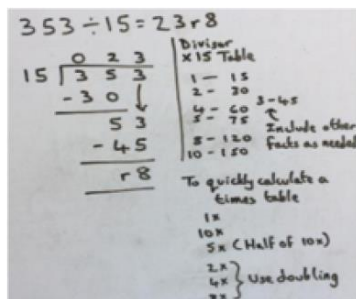 353 ÷ 15 = 23 r 8
0 2 3
15 3 5 3
- 3 0 ↓
5 3
- 4 5
r 8
Divisor
x15 Table
1 - 15
2 - 30
3 - 45
4 - 60
5 - 75
8 - 120
10 - 150
↑
Include other
facts as needed
To quickly calculate a
times table
1x
10x
5x (Half of 10x)
2x
4x } Use doubling